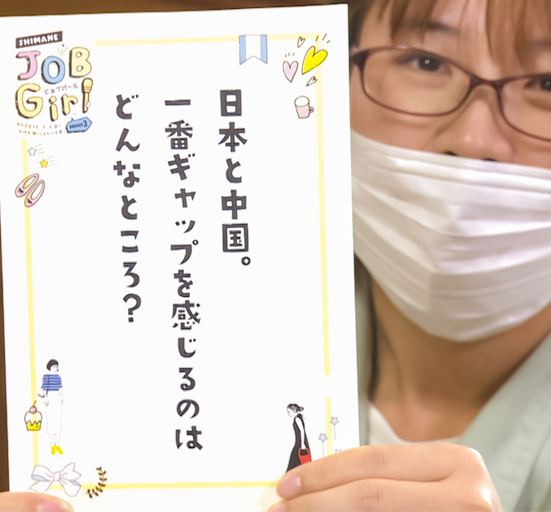 SHIMANE
JOB
Girl
じょブガール
日本と中国。
一番ギャップを感じるのは
どんなところ?